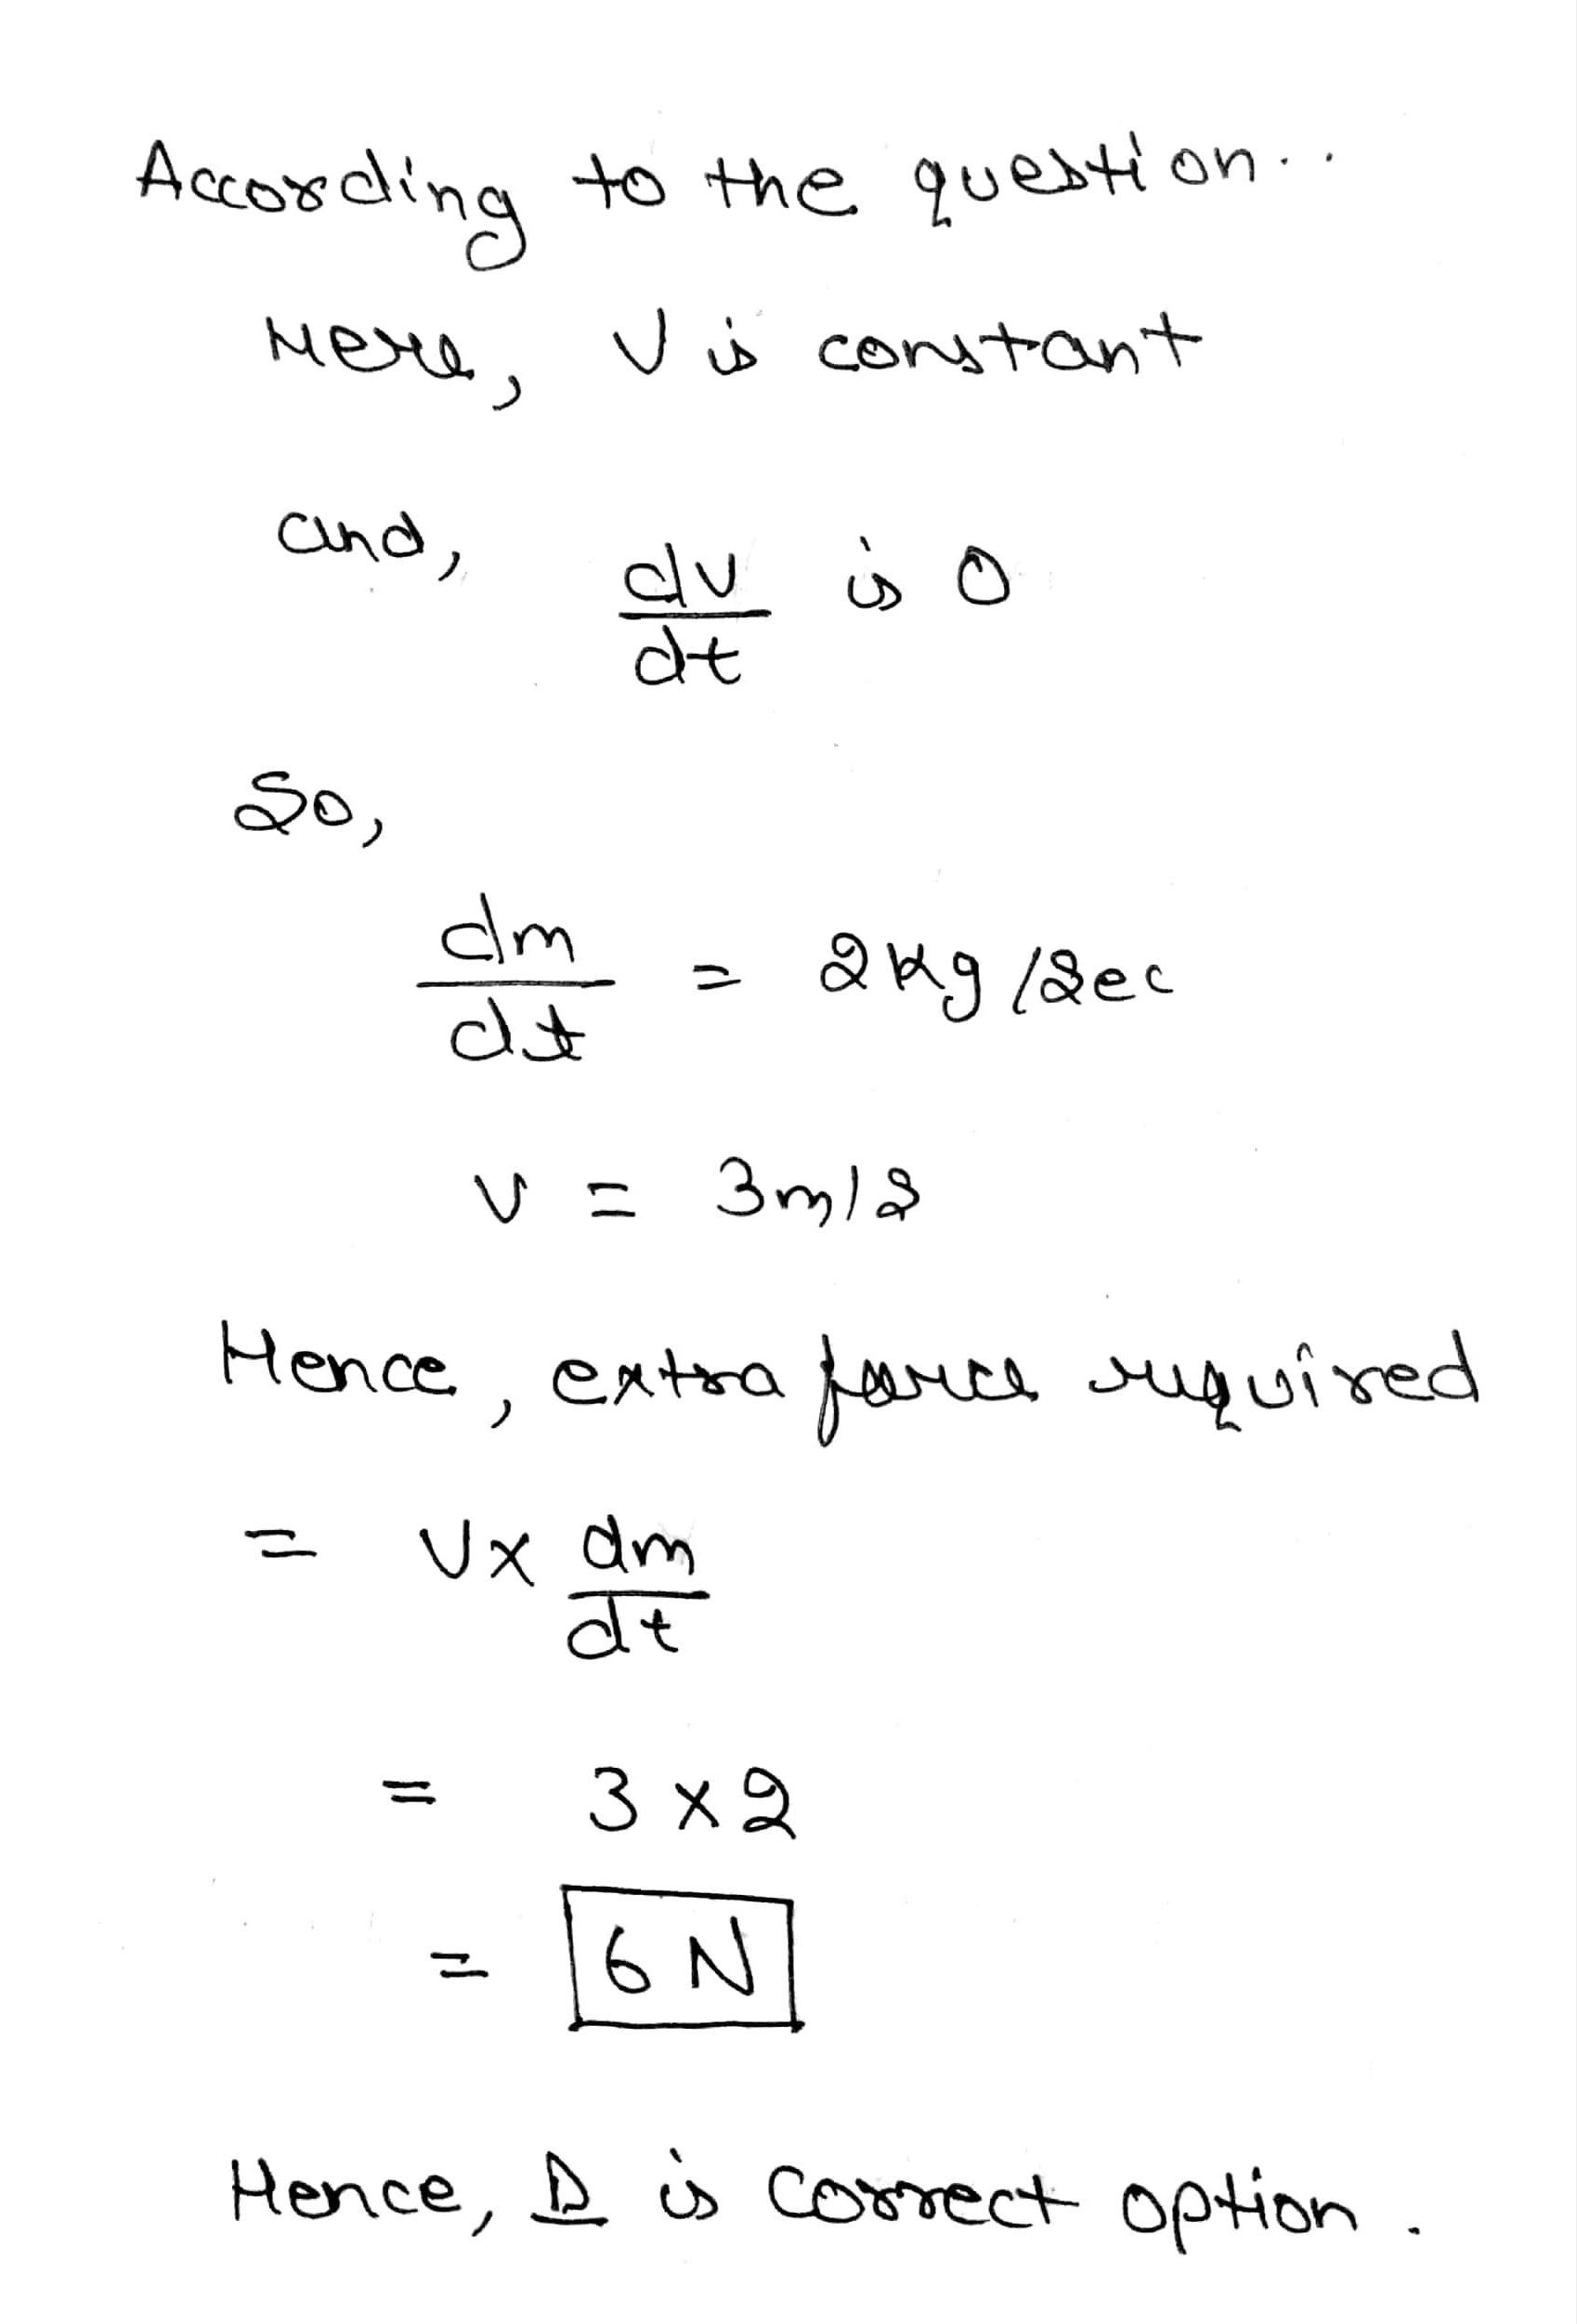 According to the question..
Here, V is constant
and, dv/dt is 0
So,
dm/dt = 2kg/sec
v = 3m/s
Hence, extra force required
= V x dm/dt
= 3 x 2
= 6 N
Hence, D is correct option.